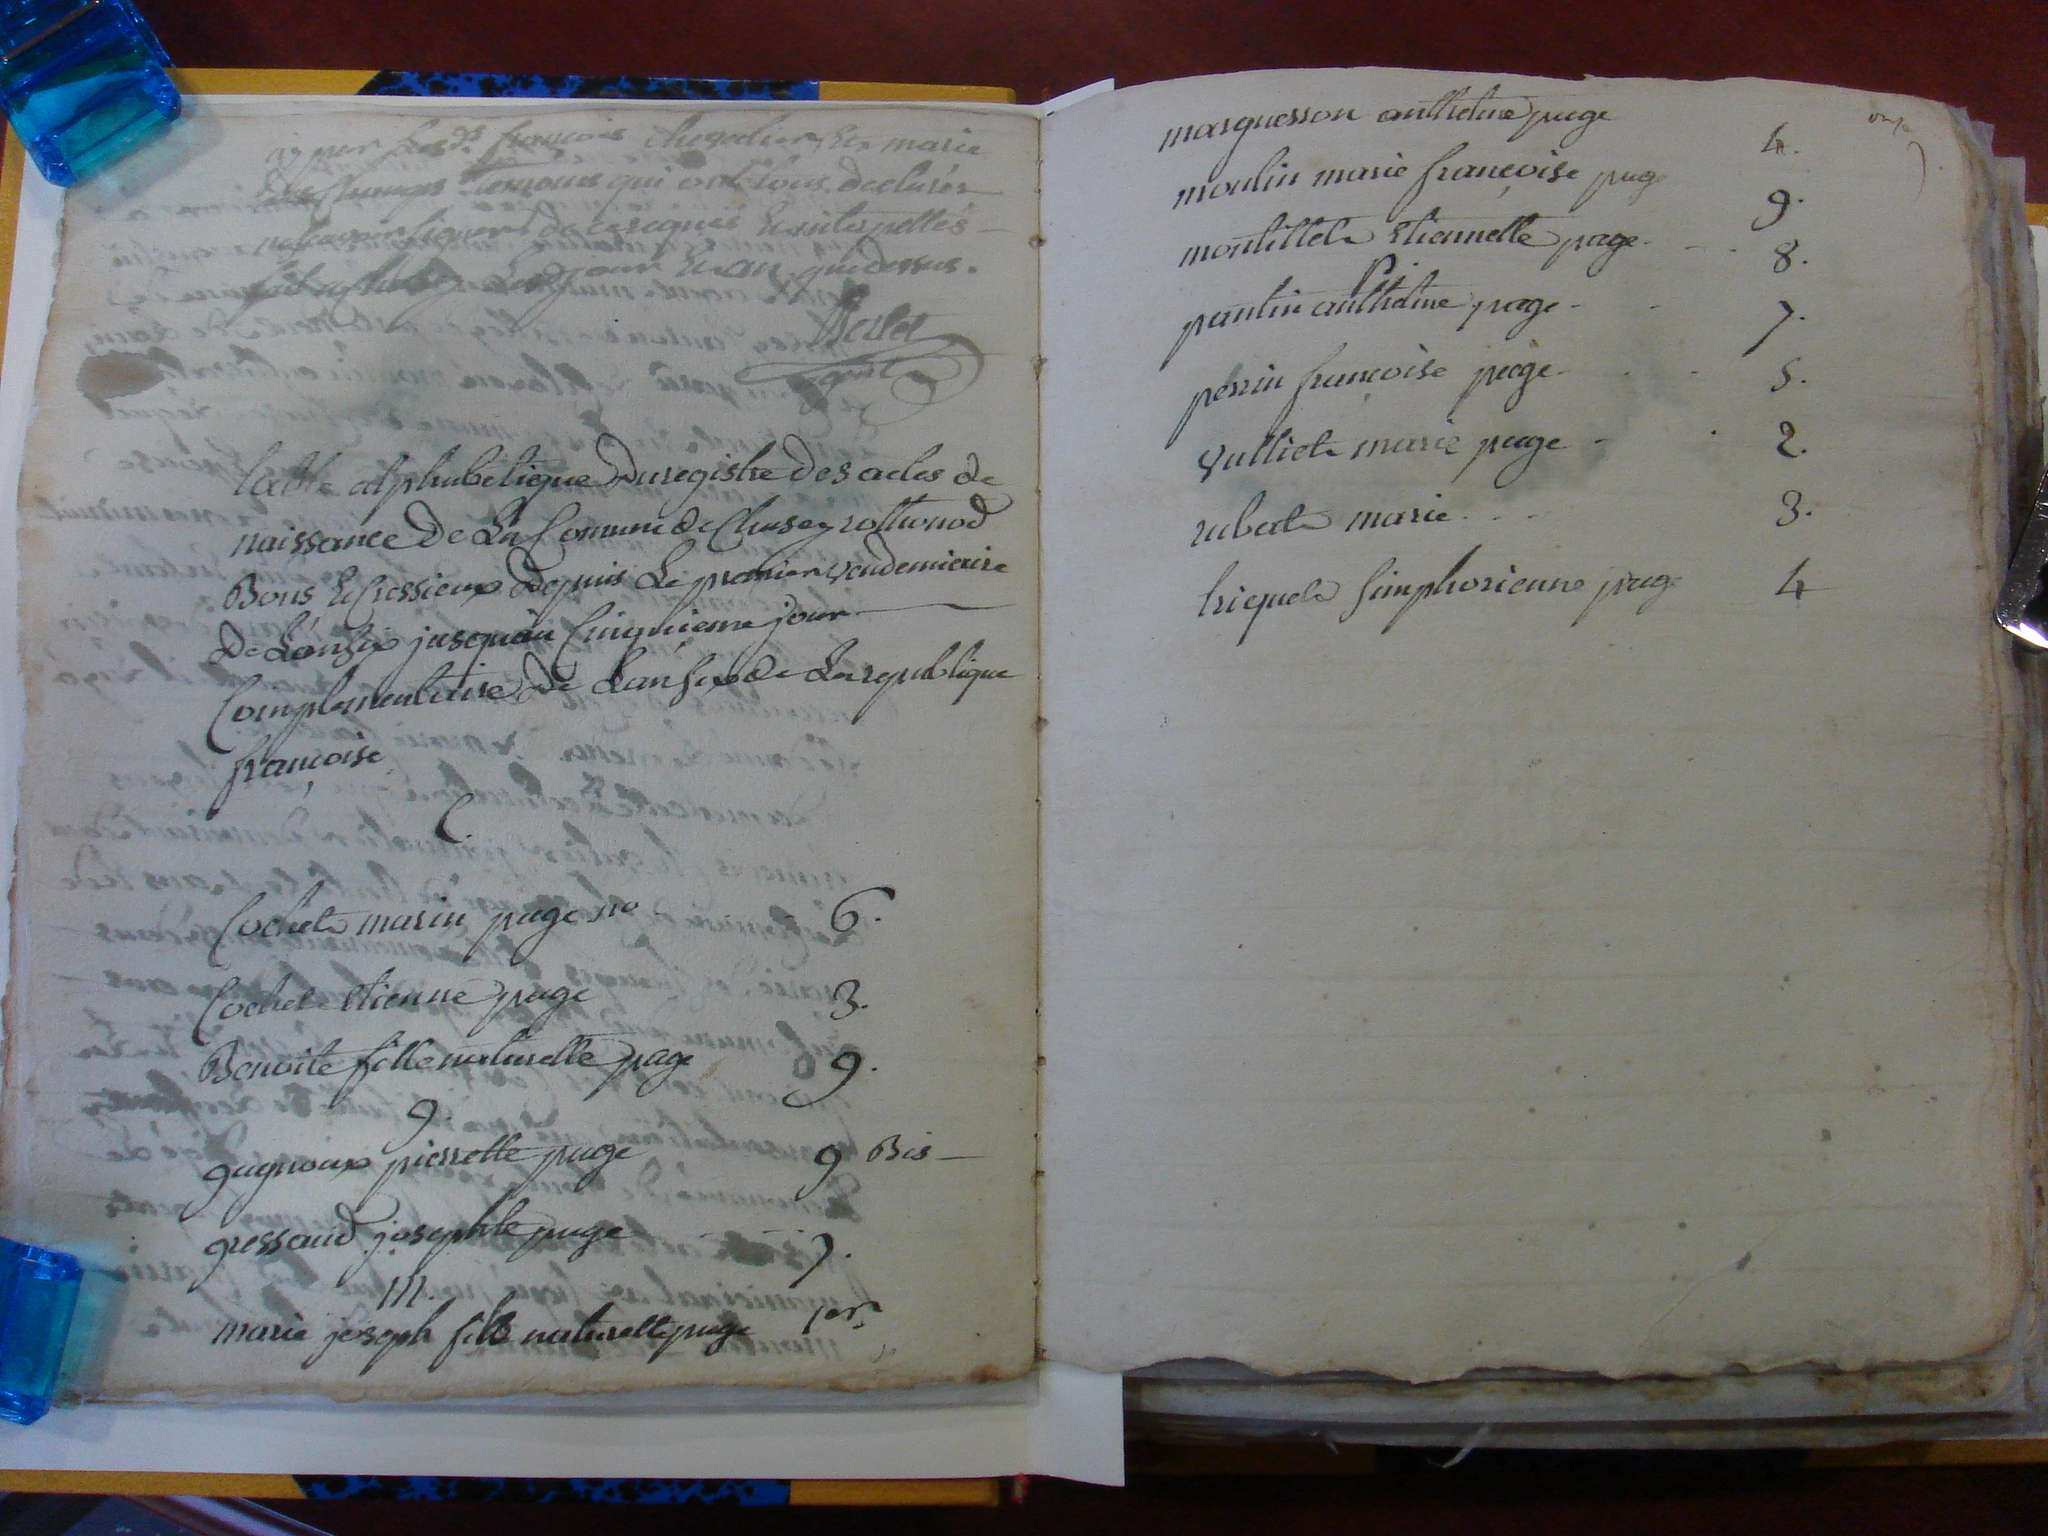 françois marie
temoins qui ont tous declarés
ne savoir signer de ce requis et interpellés
jour et an que dessus.
table alphabetique du registre des actes de
naissance de La Comune de Chasey rothonod
Bons et Cressieux depuis Le premier vendemiaire
de L'an six jusquau Cinquieme jour
Complementaire de L'an six de La republique
françoise
C.
Cochet marin page no 6.
Cochet etienne page 3.
Benoite fille naturelle page 9.
g.
gagnoux pierrette page 9 Bis
gressaud josephte page 7.
M.
marie joseph fille naturelle page 1er
marquesson anthelme page 4.
moulin marie françoise page 9.
montillet etiennette page 8.
P.
pantin anthelme page 7.
perrin françoise page 5.
vulliet marie page 2.
rubat marie 3.
triquet simphorienne page 4